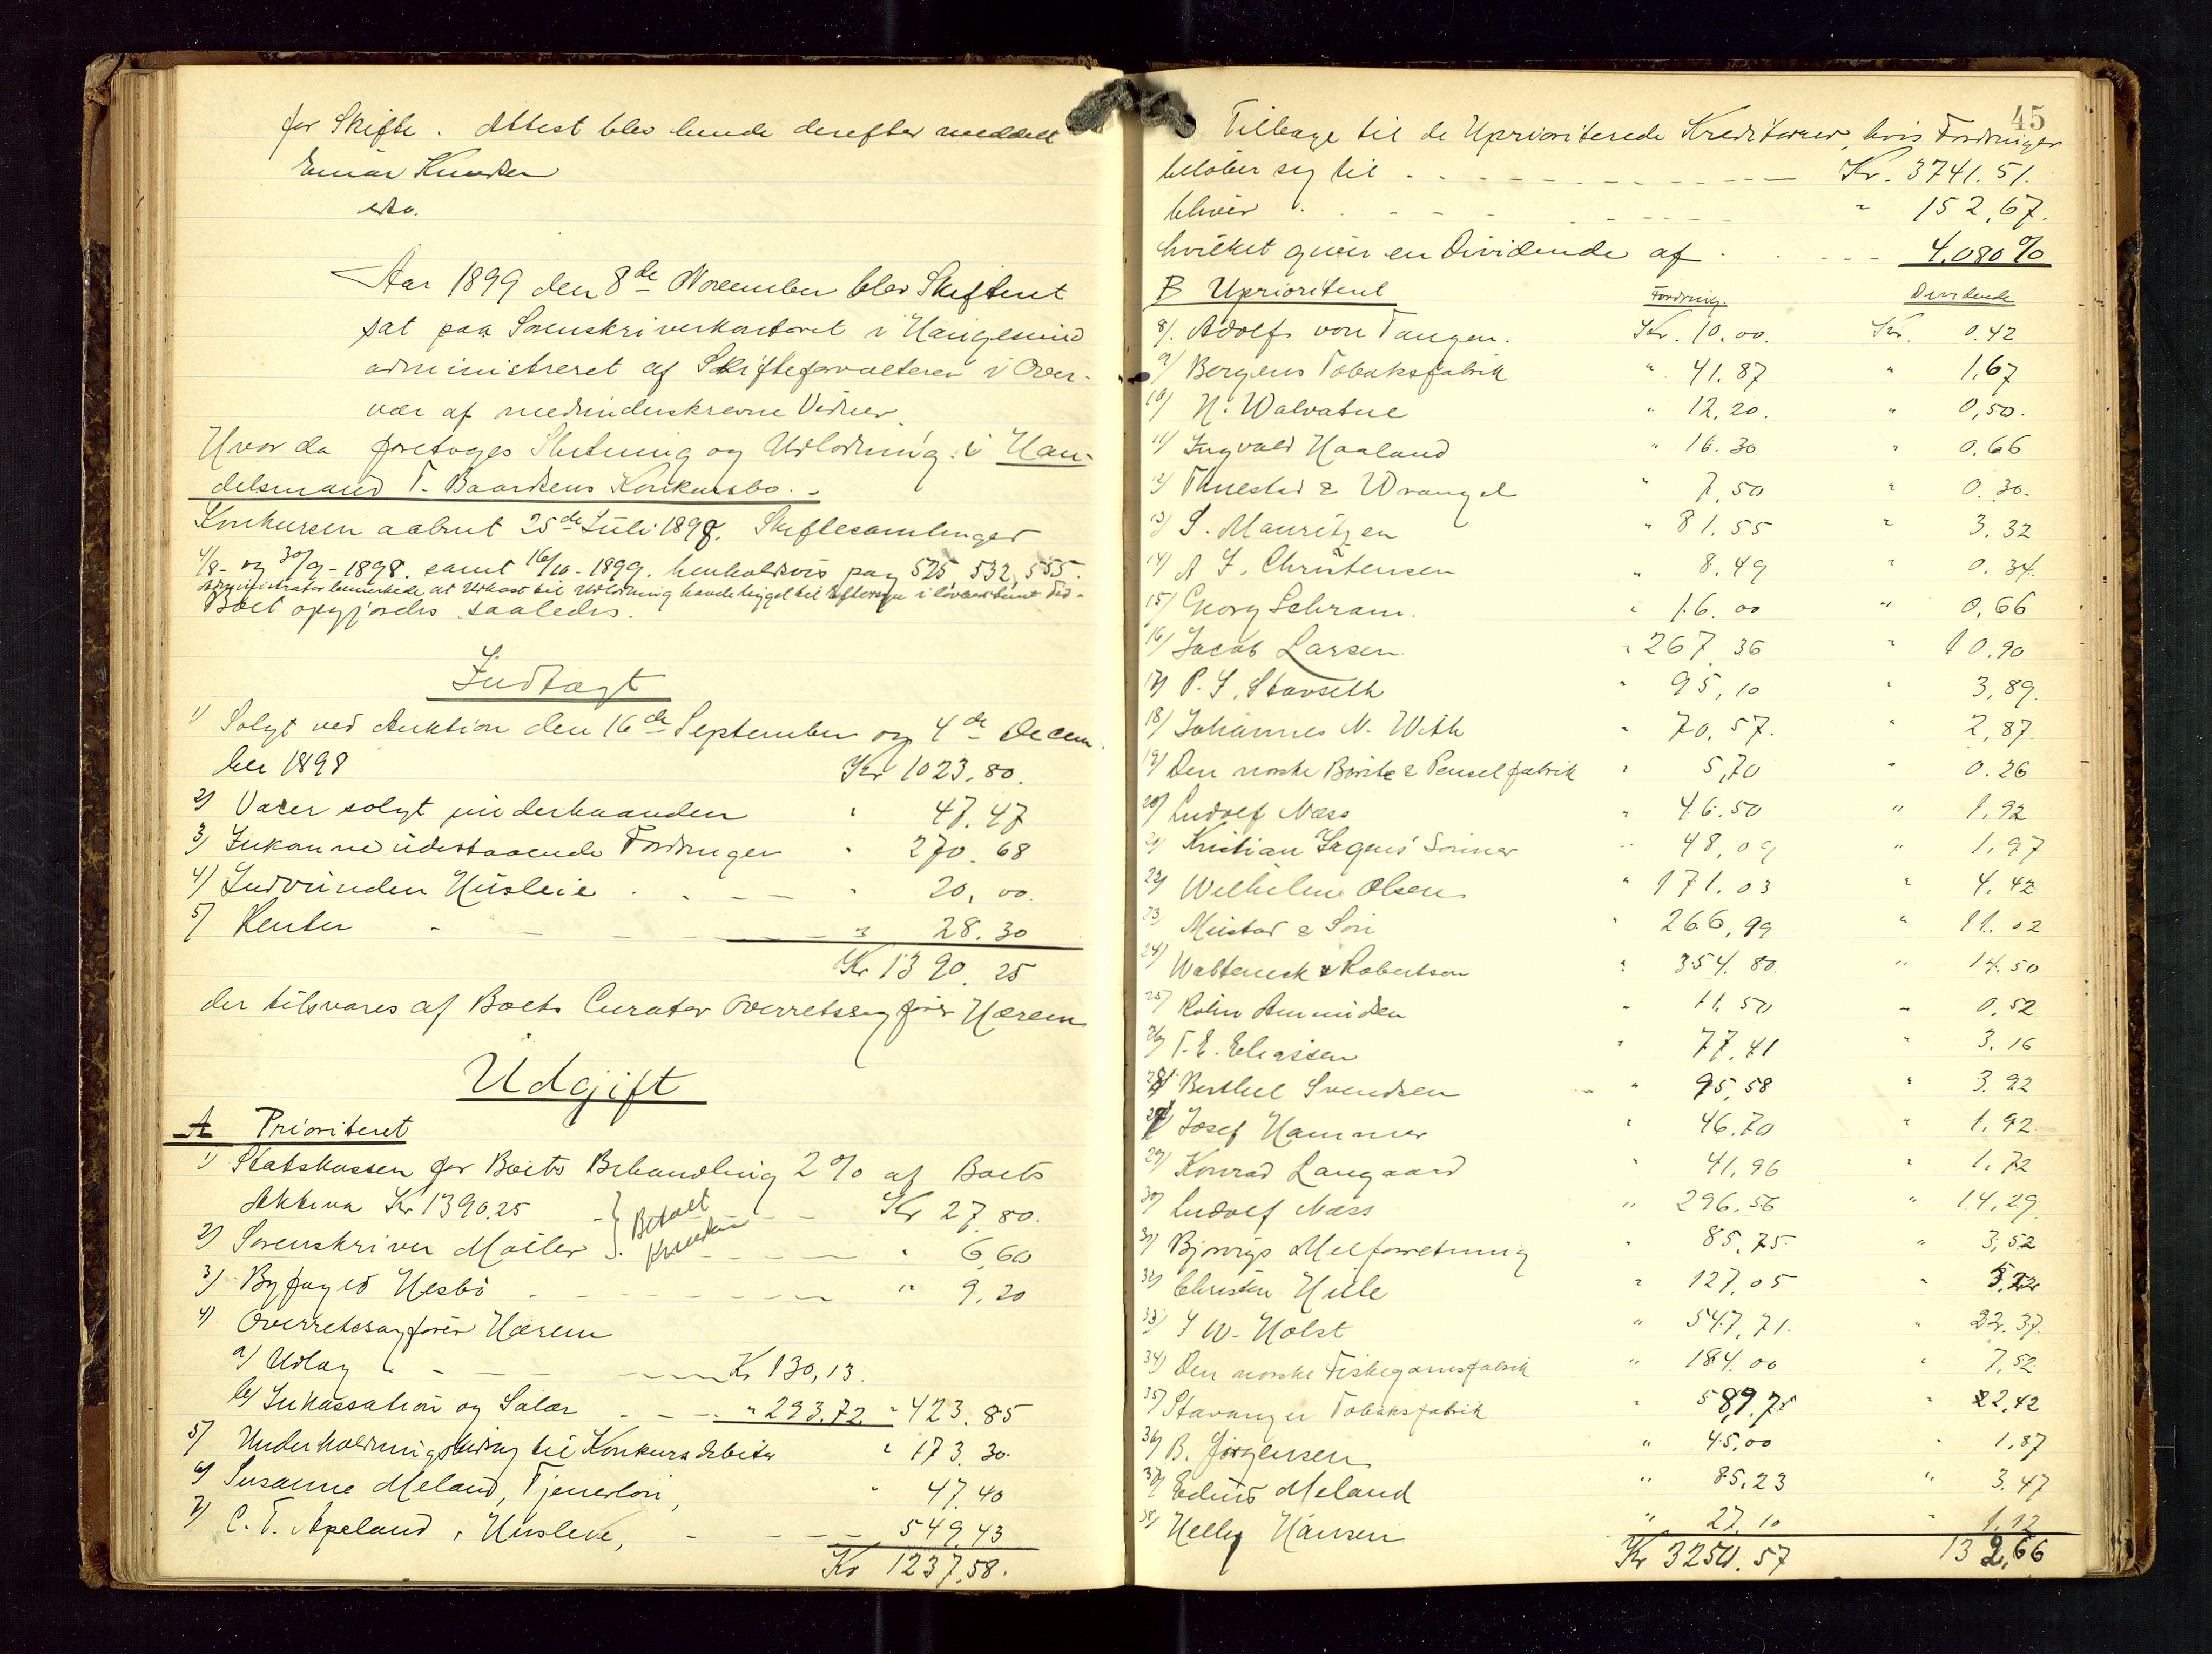 for Skifte. Attest blev hende derefter meddelt
Einar Knudsen
Aar 1899 den 8de November blev Skifteret
sat paa Sorenskriverkontoret i Haugesund
administreret af Skifteforvalteren i Over-
vær af medunderskrevne Vidner.
Hvor da foretoges Slutning og Udlodning i Han-
delsmand T. Baardsens Konkursbo. -
Konkursen aabnet 25de Juli 1898. Skiftesamlinger
4/8 - og 30/9 - 1898. samt 16/10 - 1899. henholdsvis pag 525, 532, 555.
Administrator bemærkede at Udkast til Udlodning havde ligget til Eftersyn i lovbestemt Tid -
Boet opgjordes saaledes.
Indtægt
1) Solgt ved Auktion den 16de September og 4de Decem-
ber 1898 Kr 1023.80.
2) Varer solgt underhaanden " 47.47
3) Inkomne udestaaende Fordringer " 270.68
4) Indvunden Husleie . - - - " 20,00.
5) Renter - - - - " 28.30
Kr 1390.25
der tilsvares af Boets Curator Overretssagfører Hærem
Udgift
A Prioriteret
1) Statskassen for Boets Behandling 2% af Boets
Aktiva Kr 1390.25 - } Betalt - - Kr 27.80.
2) Sorenskriver Møller } Knudsen - - - " 6,60
3) Byfoged Hesbø - - - - - " 9.20
4) Overretssagfører Hærem
a) Udlæg - - - Kr 130,13.
b) Inkassation og Salær - - - " 293.72 " 423.85
5) Underholdningsbidrag til Konkursdebitor " 173.30.
6) Susanne Meland, Tjenerløn, " 47.40
7) C. T. Apeland, Husleie, - - - - 549,43
Kr 1237.58.
45
Tilbage til de Uprioriterede Kreditorer, hvis Fordringer
beløber sig til . - - - - - - Kr. 3741.51.
bliver . - - - - - - " 152,67.
hvilket giver en Dividende af . . - - - 4.080%
B Uprioriteret Fordring. Dividende
8) Adolf von Tangen. Kr. 10.00. Kr. 0.42
9) Bergens Tobaksfabrik " 41.87 " 1,67
10) N. Walvatne " 12,20. " 0,50.
11) Ingvald Haaland " 16.30 " 0,66
12) Tanestad & Wrangel " 7,50 " 0.30.
13) S. Mauritzen " 81.55 " 3.32
14) A J. Christensen " 8.49 " 0.34.
15) Georg Schram. " 16.00 " 0,66
16) Jacob Larsen. " 267.36 " 10.90
17) P. J. Stavseth " 95,10 " 3,89.
18) Johannes N. With " 70,57. " 2,87.
19) Den norske Børste & Penselfabrik " 5,70 " 0.26
20) Ludolf Næss " 46.50 " " 1,92
21) Kristian Irgens' Sønner " 48,09 " 1.97
22) Wilhelm Olsen " 171.03 " 4.42
23) Mustad & Søn " 266,99 " 11.02
24) Robertson " 354.80. " 14.50
25) Kolin Amundsen " 11.50 " 0,52
26) T. E. Eliassen " 77,41 " 3.16
27) Berthel Svendsen - " 95,58 " 3.92
28) Josef Hammer " 46.70 " 1,92
29) Konrad Langaard " 41,96 " 1.72
30) Ludolf Næss " 296.56 " 14,29
31) Bjørvigs Melforretning " 85.75 " 3,52
32) Christian Hille " 127.05 " 5,22
33) J W. Holst " 547,71. " 22.37.
34) Den norske Fiskegarnsfabrik " 184.00 " 7,52
35) Stavanger Tobaksfabrik " 589.75 " 22,42
36) B. Jørgensen " 45,00 " 1.87
37) Edvard Meland " 85.23 " 3.47
38) Helly Hansen " 27.10 " 1.12
Kr 3250.57 132,66